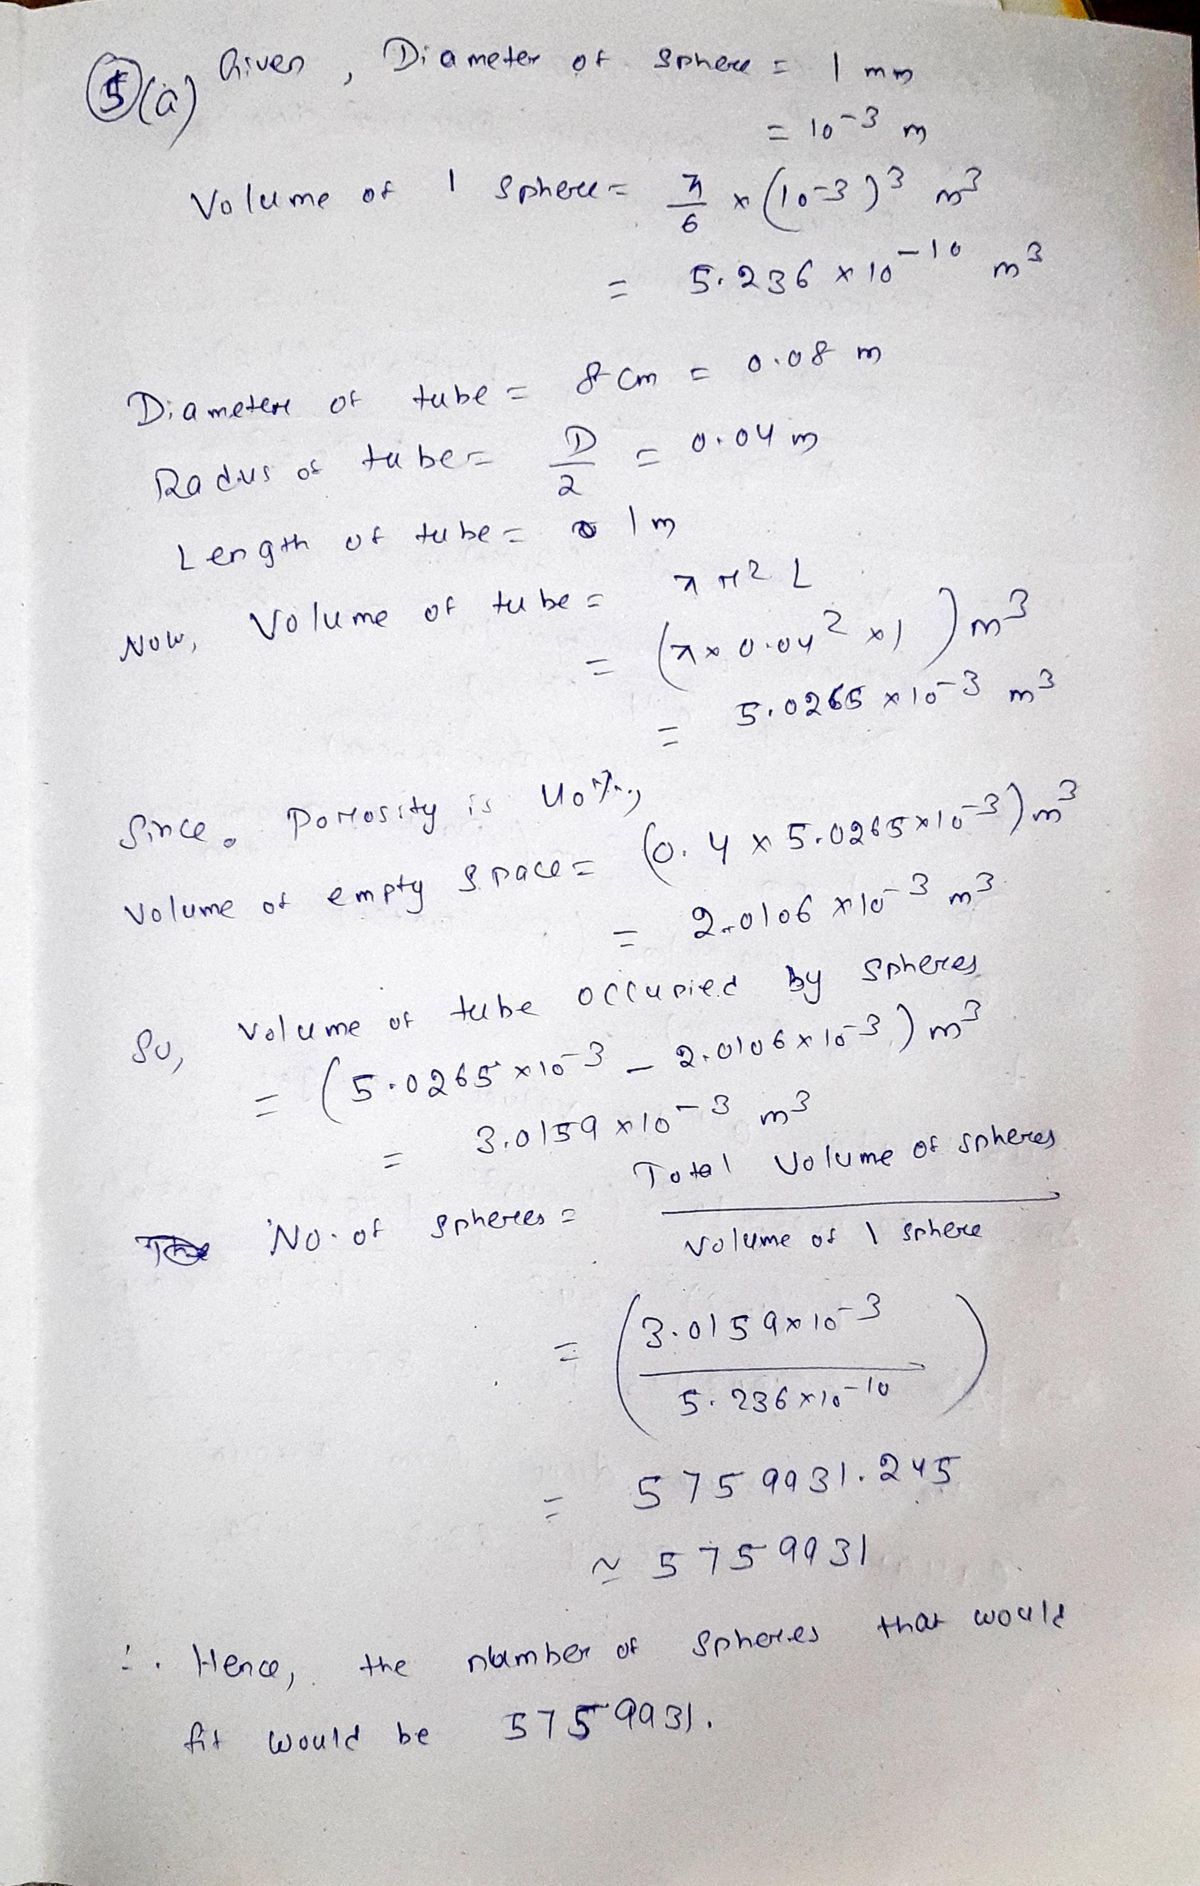 5(a) Given, Diameter of sphere = 1 mm
= 10-3 m
Volume of 1 sphere = π/6 × (10-3)3 m3
= 5.236 × 10-10 m3
Diameter of tube = 8 cm = 0.08 m
Radius of tube = D/2 = 0.04 m
Length of tube = 1 m
Now, Volume of tube = π r2 L
= (π × 0.042 × 1) m3
= 5.0265 × 10-3 m3
Since, Porosity is 40%,
Volume of empty space = (0.4 × 5.0265 × 10-3) m3
= 2.0106 × 10-3 m3
So, Volume of tube occupied by spheres
= (5.0265 × 10-3 - 2.0106 × 10-3) m3
= 3.0159 × 10-3 m3
No. of spheres = Total Volume of spheres
Volume of 1 sphere
= (3.0159 × 10-3
5.236 × 10-10)
= 5759931.245
≃ 5759931
∴ Hence, the number of spheres that would
fit would be 5759931.